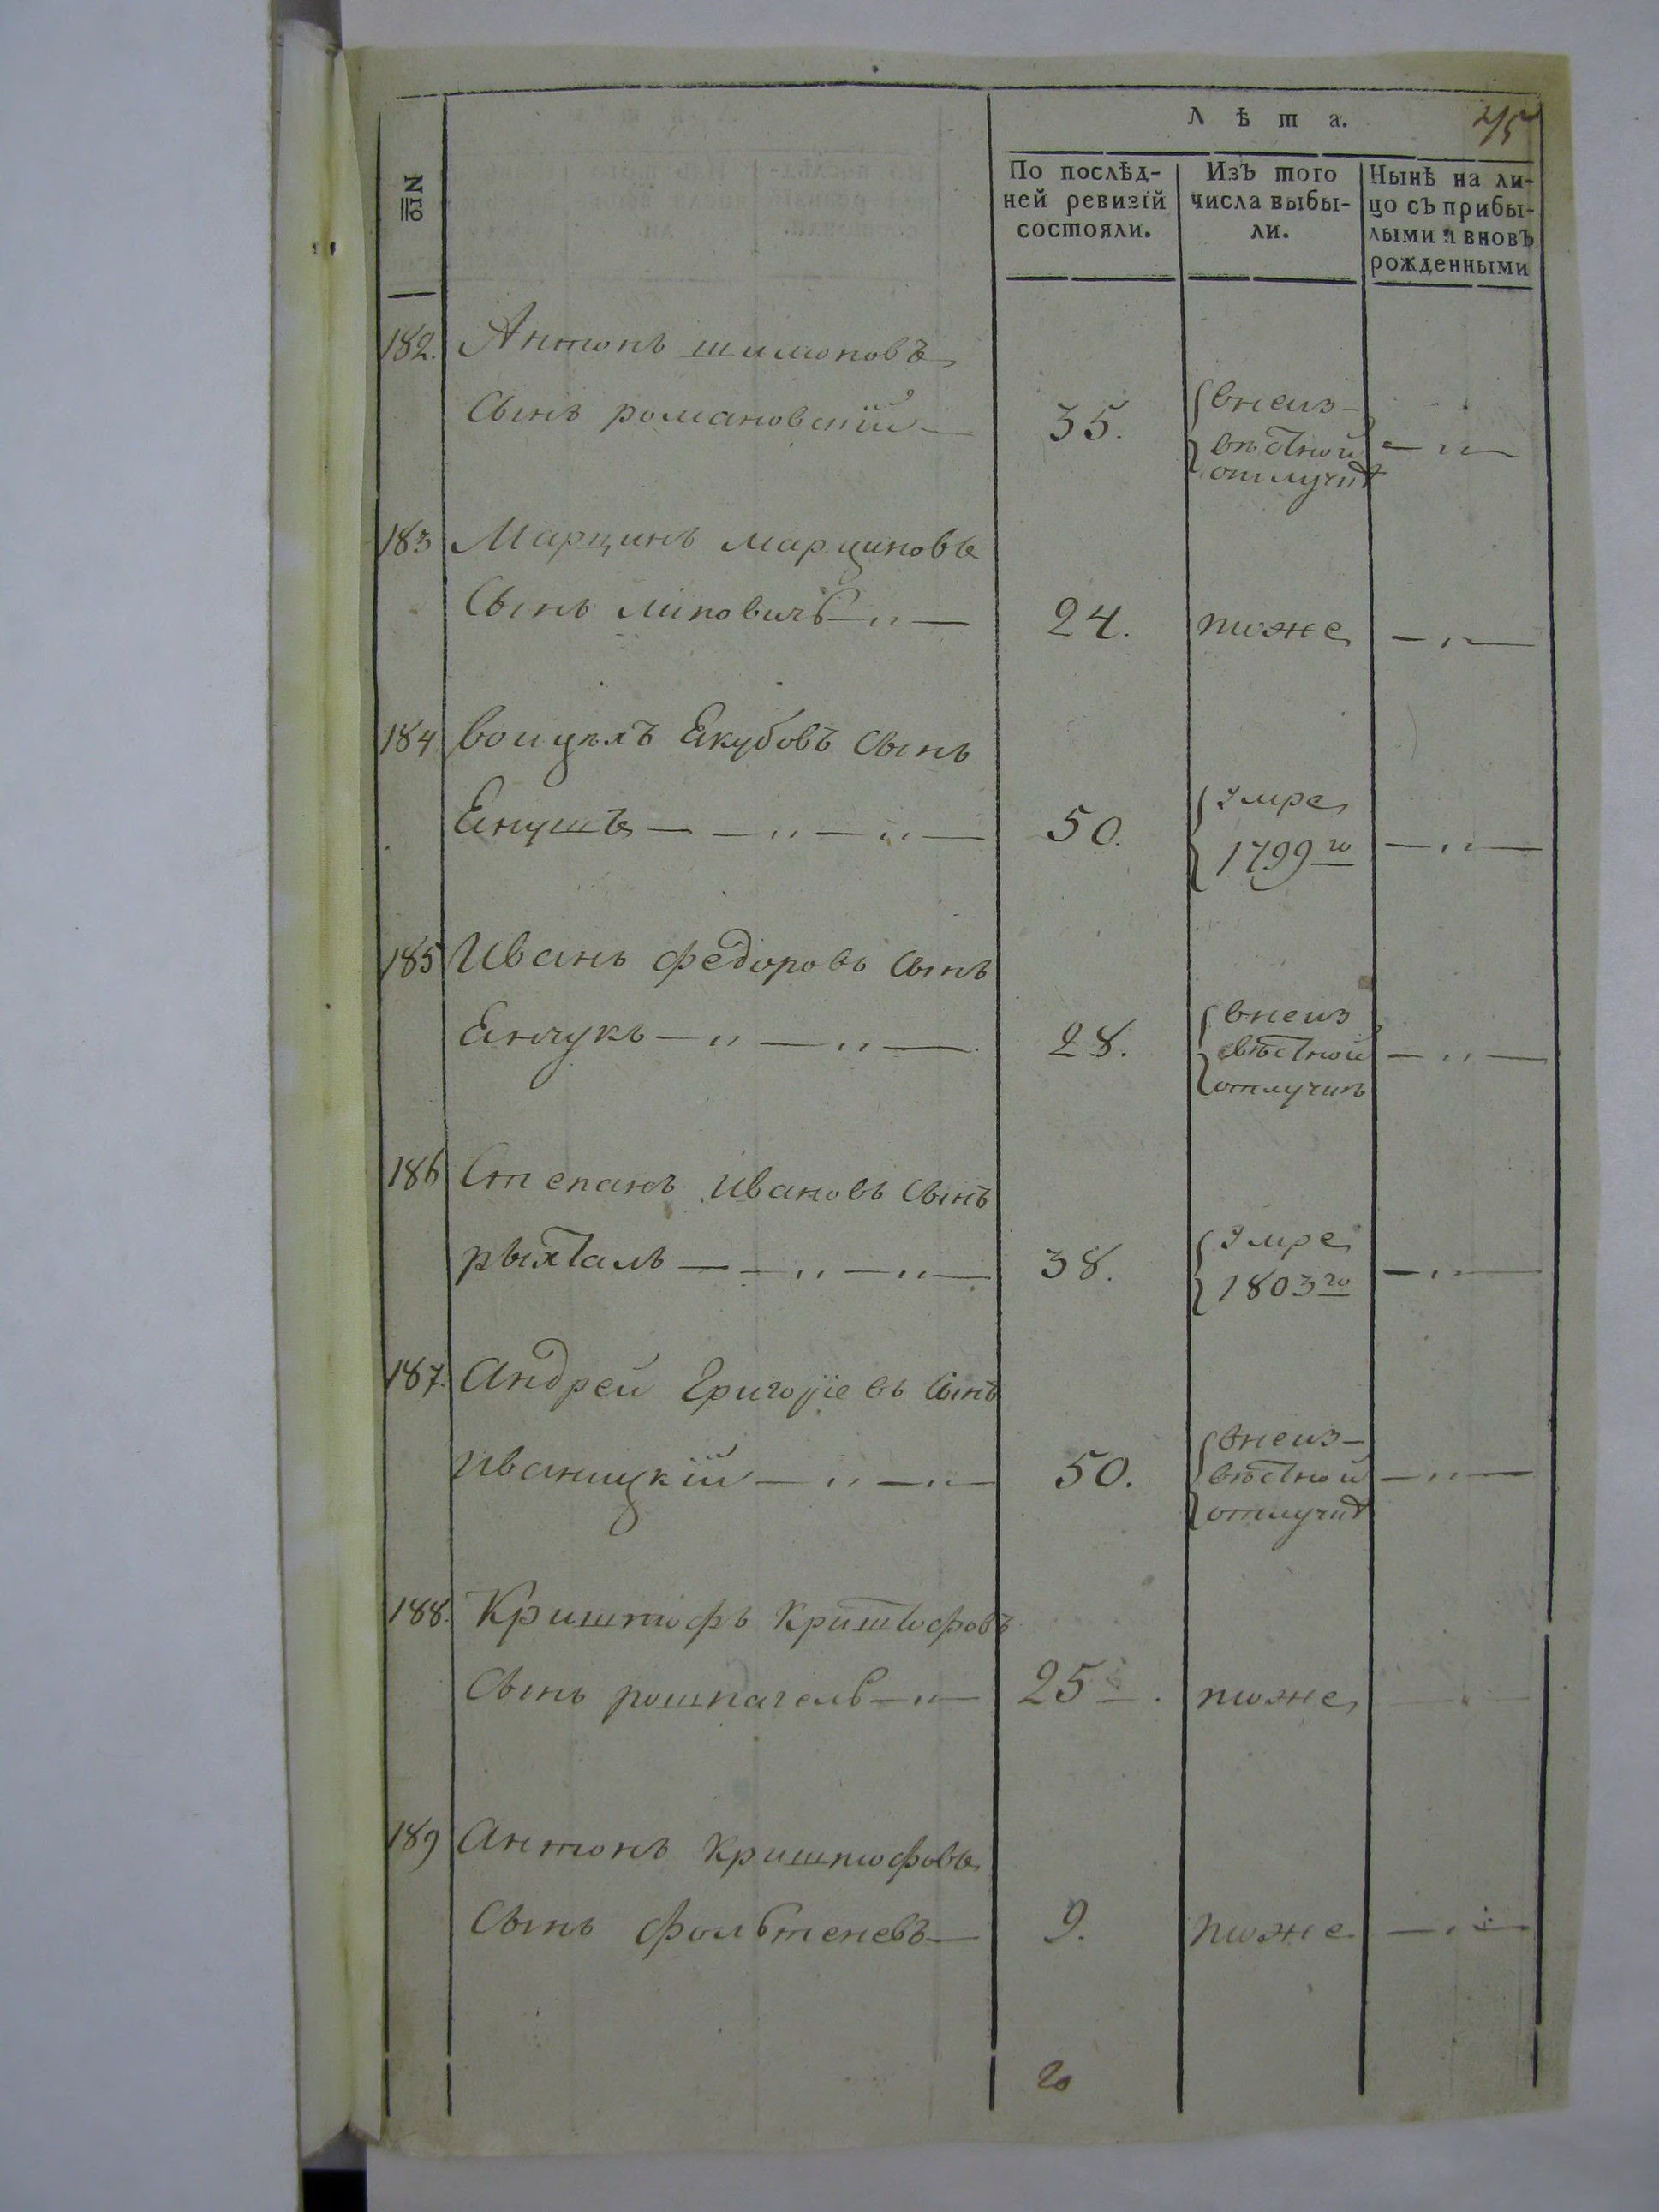 Лѣта.
№го
По послѣд-
ней ревизій
состояли.
Изъ того
числа выбы-
ли.
Нынѣ на ли-
цо съ прибы-
лыми и вновь
рожденными
182. Антонъ шимоновъ
Сынъ романовскій — 35.
внеиз-
вѣстной — „ —
отлучкѣ
183 Марцинъ марциновъ
Сынъ липовичъ — „ — 24. тоже — „ —
184 воицѣхъ Екубовъ Сынъ
Енушъ — — „ — „ — 50.
умре
1799го — „ —
185 Иванъ федоровъ Сынъ
Енчукъ — „ — „ — 28.
внеиз
вѣстной — „ —
отлучкѣ
186 Степанъ ивановъ Сынъ
рыхталь — — „ — „ — 38.
умре
1803го — „ —
187. Андрей Григоріевъ Сынъ
иваницкій — „ — „ — 50.
внеиз-
вѣстной — „ —
отлучкѣ
188. Криштофъ Криштофовъ
Сынъ рошнагель — „ — 25 — . тоже — „ —
189 Антонъ криштофовъ
Сынъ фольтеневъ — 9. тоже — „ —